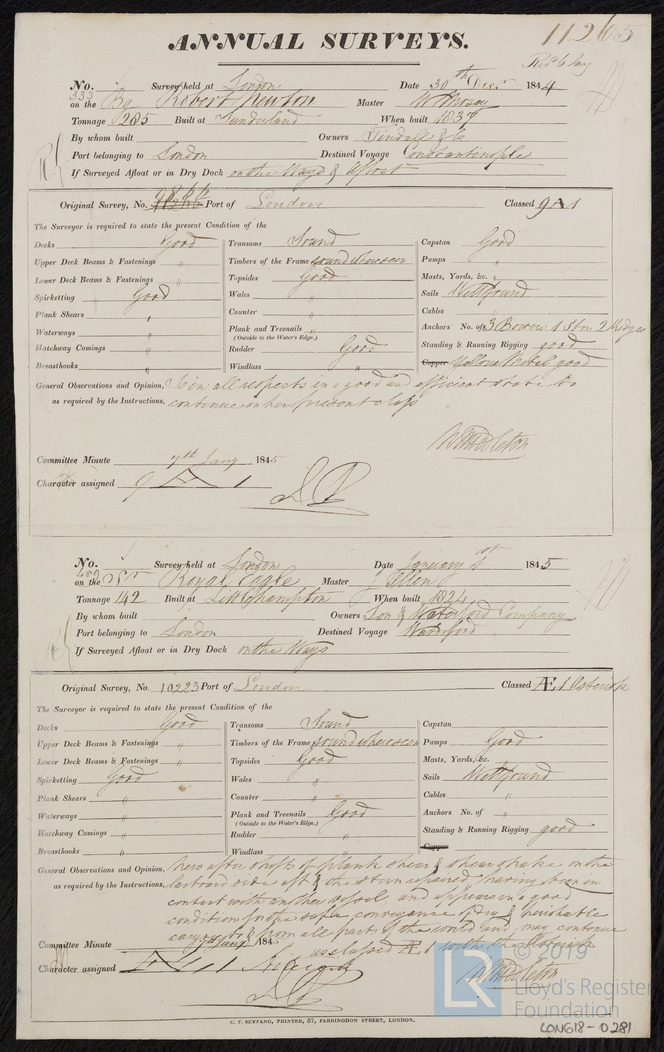 11265
ANNUAL SURVEYS.
No. 333 Survey held at London Date 30th Decr 1844
on the Bg Robert Newton Master
Tonnage 285 Built at Sunderland When built 1837
By whom built Owners Tindall & Co
Port belonging to London Destined Voyage Constantinople
If Surveyed Afloat or in Dry Dock on the Ways & Afloat
Original Survey, No. Port of London Classed 9 A 1
The Surveyor is required to state the present Condition of the
Decks Good
Upper Deck Beams & Fastenings "
Lower Deck Beams & Fastenings "
Spirketting Good
Plank Shears "
Waterways "
Hatchway Comings "
Breasthooks "
Transoms Sound
Timbers of the Frame sound where seen
Topsides Good
Wales "
Counter "
Plank and Treenails "
(Outside to the Water's Edge.)
Rudder Good
Windlass "
Capstan Good
Pumps "
Masts, Yards, &c. "
Sails Well found
Cables "
Anchors No. of 3 Bowers 1 Strm 2 Kedges
Standing & Running Rigging good
Copper Yellow Metal good
General Observations and Opinion, Is in all respects in a good and efficient state to
as required by the Instructions, continue on her present class
Committee Minute 7th Jany 1845
Character assigned 9 A 1
No. 400 Survey held at London Date January 1st 1845
on the Scr Royal Eagle Master J Allen
Tonnage 142 Built at Little Hampton When built 1824
By whom built Owners Lon & Waterford Company
Port belonging to London Destined Voyage Waterford
If Surveyed Afloat or in Dry Dock on the Ways
Original Survey, No. 10223 Port of London Classed Æ 1 Asterisk
The Surveyor is required to state the present Condition of the
Decks Good
Upper Deck Beams & Fastenings "
Lower Deck Beams & Fastenings "
Spirketting Good
Plank Shears "
Waterways "
Hatchway Comings "
Breasthooks "
Transoms Sound
Timbers of the Frame sound where seen
Topsides Good
Wales "
Counter "
Plank and Treenails Good
(Outside to the Water's Edge.)
Rudder "
Windlass "
Capstan
Pumps Good
Masts, Yards, &c. "
Sails Well found
Cables "
Anchors No. of "
Standing & Running Rigging good
Copper
General Observations and Opinion, shifts of plank shear & shear strake on the
as required by the Instructions, larboard side aft & the stern repaired having been in
contact with another vessel, and appears in a good
condition for the safe conveyance of dry & perishable
cargoes to & from all parts of the world and may continue
as classed Æ 1 with the Asterisk
Committee Minute 7th Jany 1845
Character assigned Æ 1
C. F. SEYFANG, PRINTER, 57, FARRINGDON STREET, LONDON.
LR
© 2019
Lloyd's Register
Foundation
LON618-0281